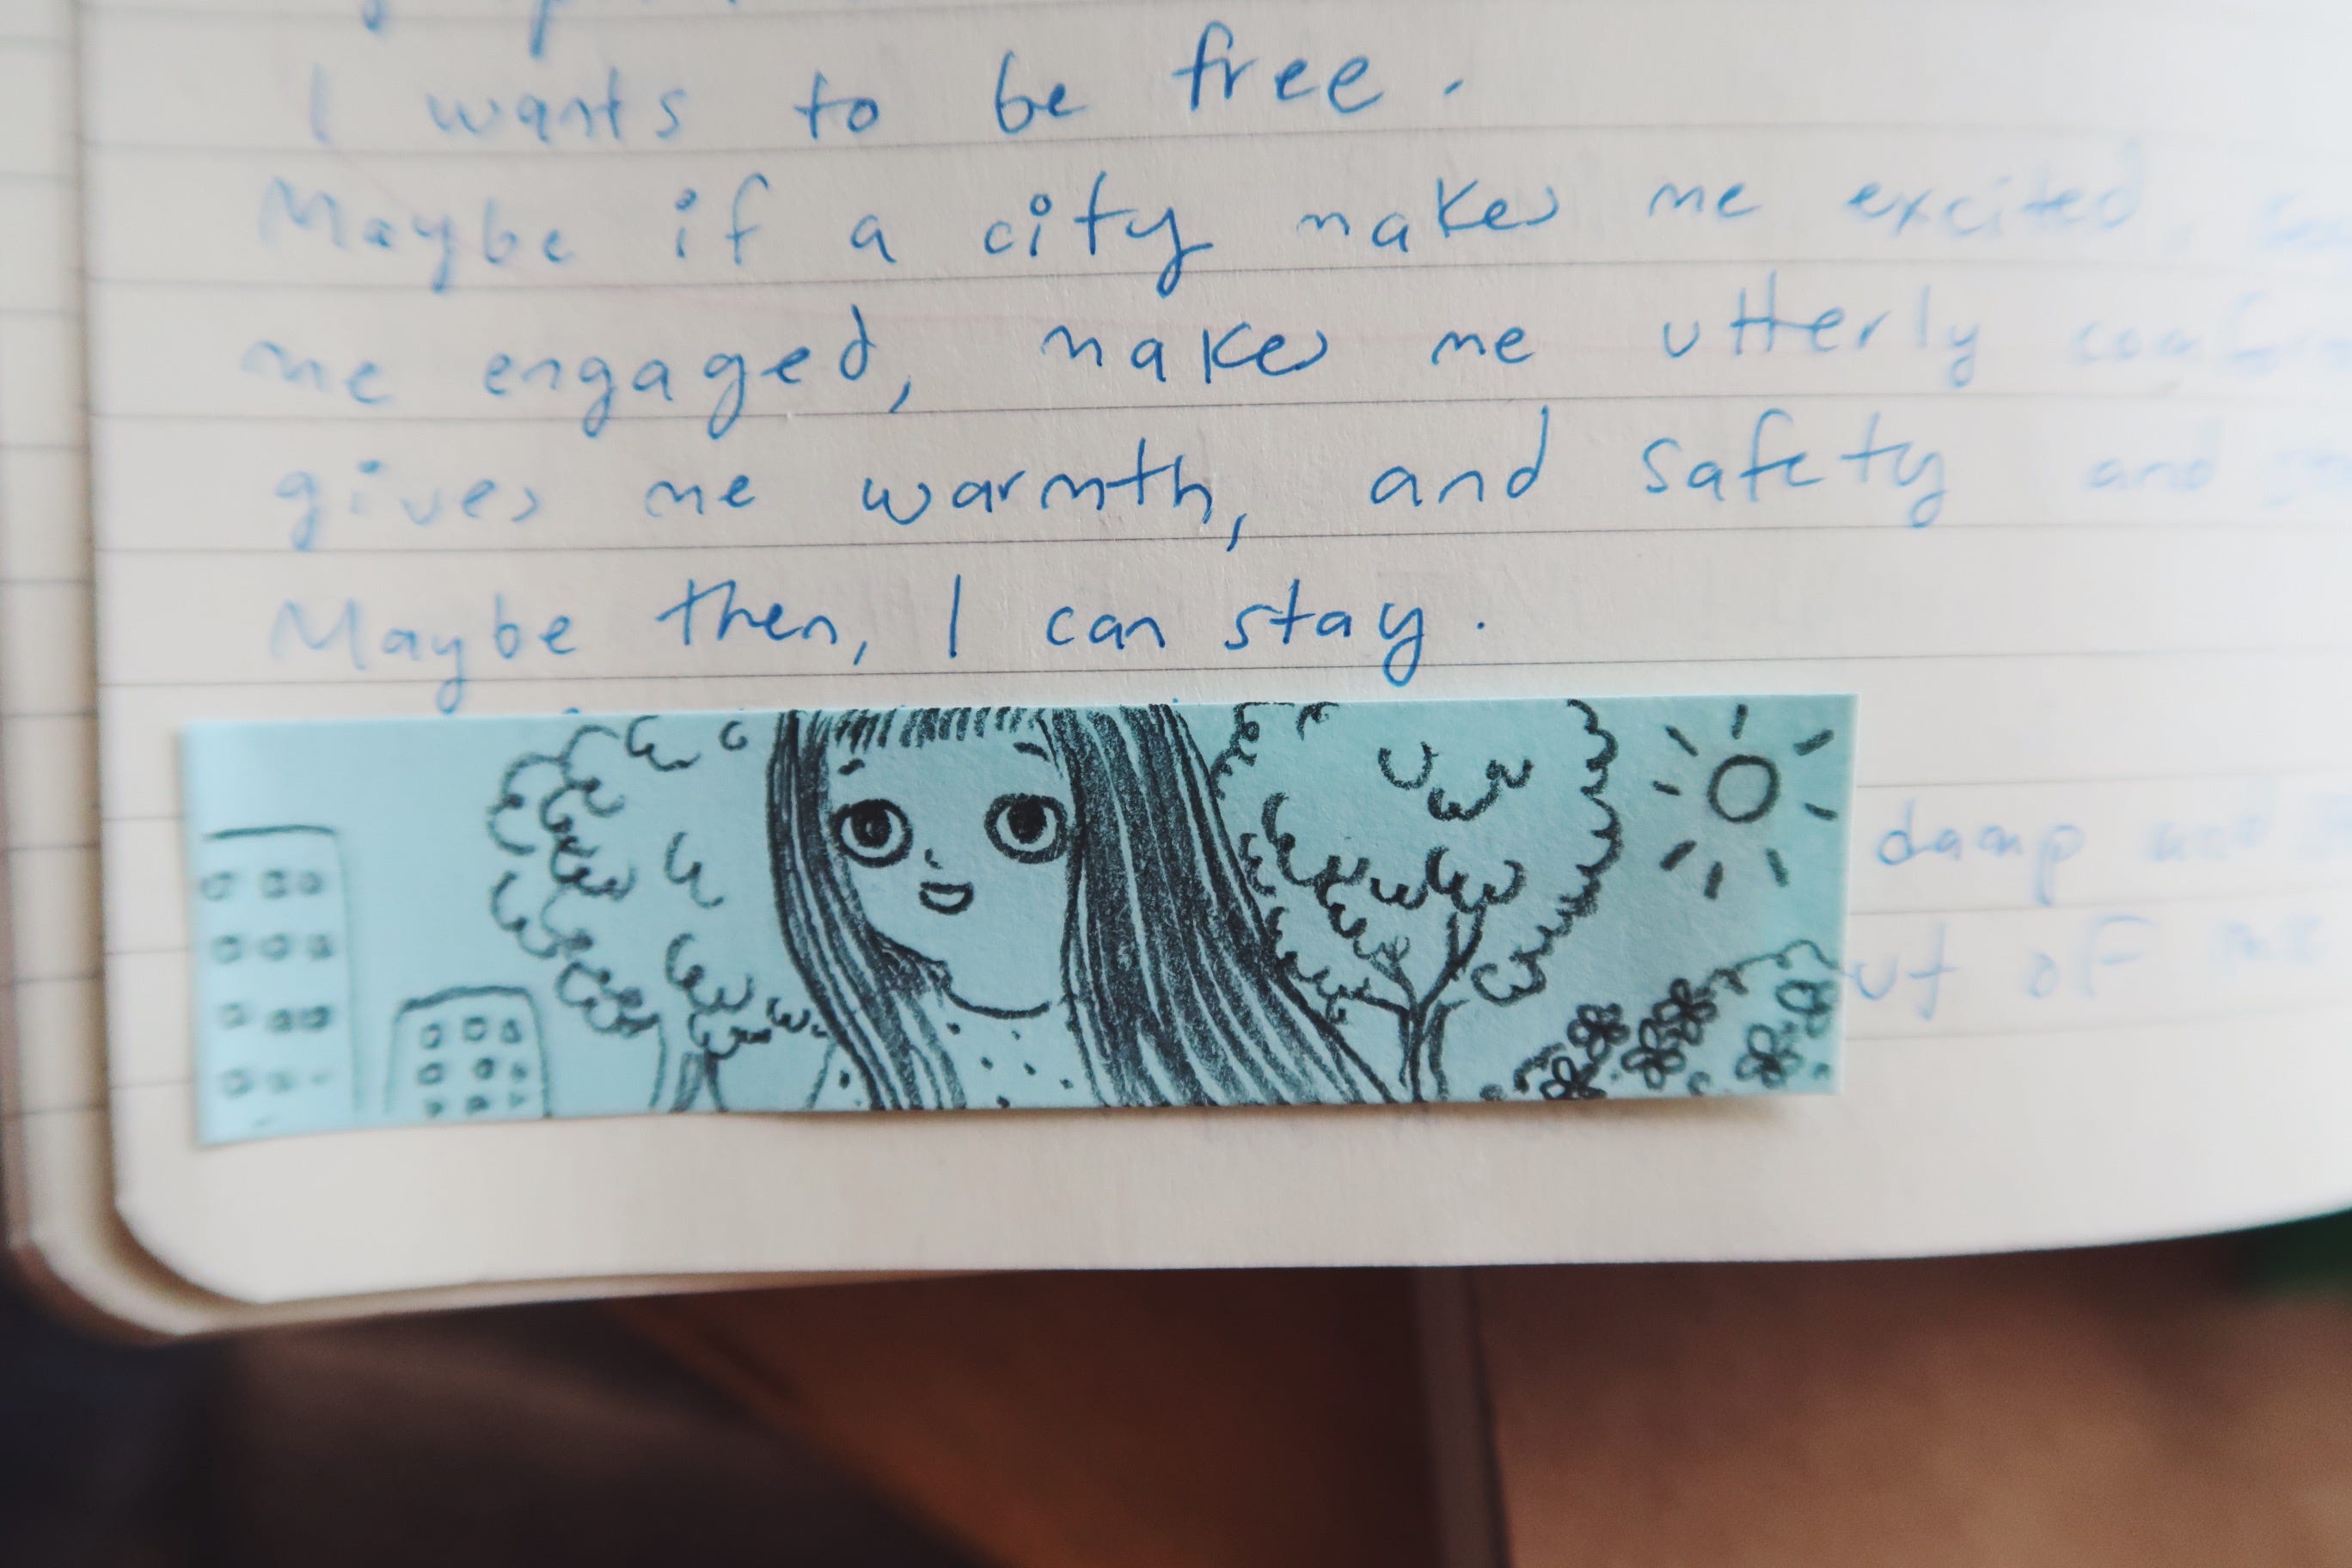 I wants to be free.
Maybe if a city makes me excited,
me engaged, makes me utterly
gives me warmth, and safety and
Maybe then, I can stay.
damp and
of me